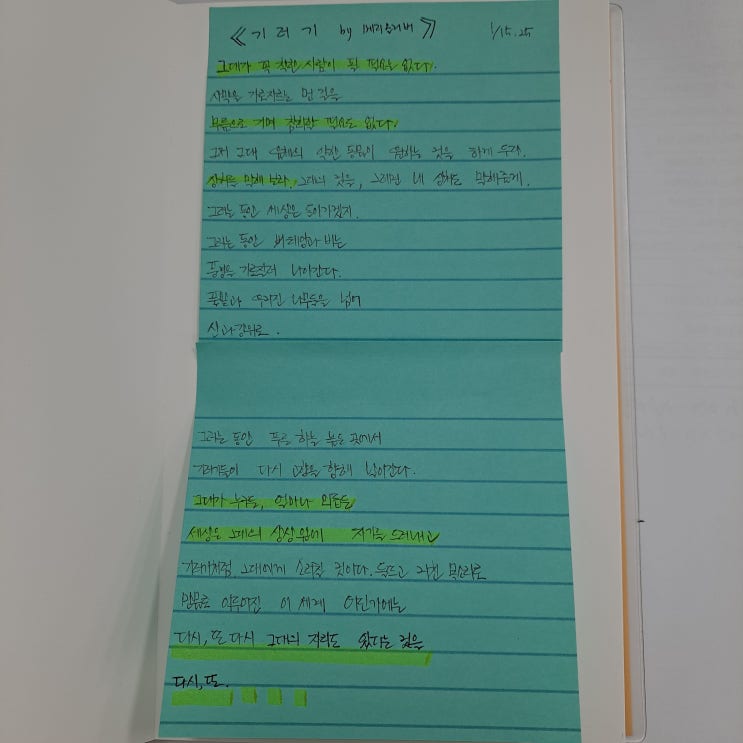 《기러기 by 메리 올리버》 1/15.25
그대가 꼭 착한 사람이 될 필요는 없다.
사막을 가로지르는 먼 길을
무릎으로 기며 참회할 필요도 없다.
그저 그대 육체의 약한 동물이 원하는 것을 하게 두라.
상처를 말해 보라, 그대의 것을, 그러면 내 상처도 말해줄게.
그러는 동안 세상은 돌아가겠지.
그러는 동안 태양과 비는
풍경을 가로질러 나아간다.
풀밭과 우거진 나무들을 넘어
산과 강위로.
그러는 동안 푸른 하늘 높은 곳에서
기러기들이 다시 고향을 향해 날아간다.
그대가 누구든, 얼마나 외롭든
세상은 그대의 상상 위에 자기를 드러내고
기러기처럼 그대에게 소리칠 것이다. 들뜨고 거친 목소리로
만물로 이루어진 이 세계 어딘가에는
다시, 또 다시 그대의 자리도 있다는 것을
다시, 또.